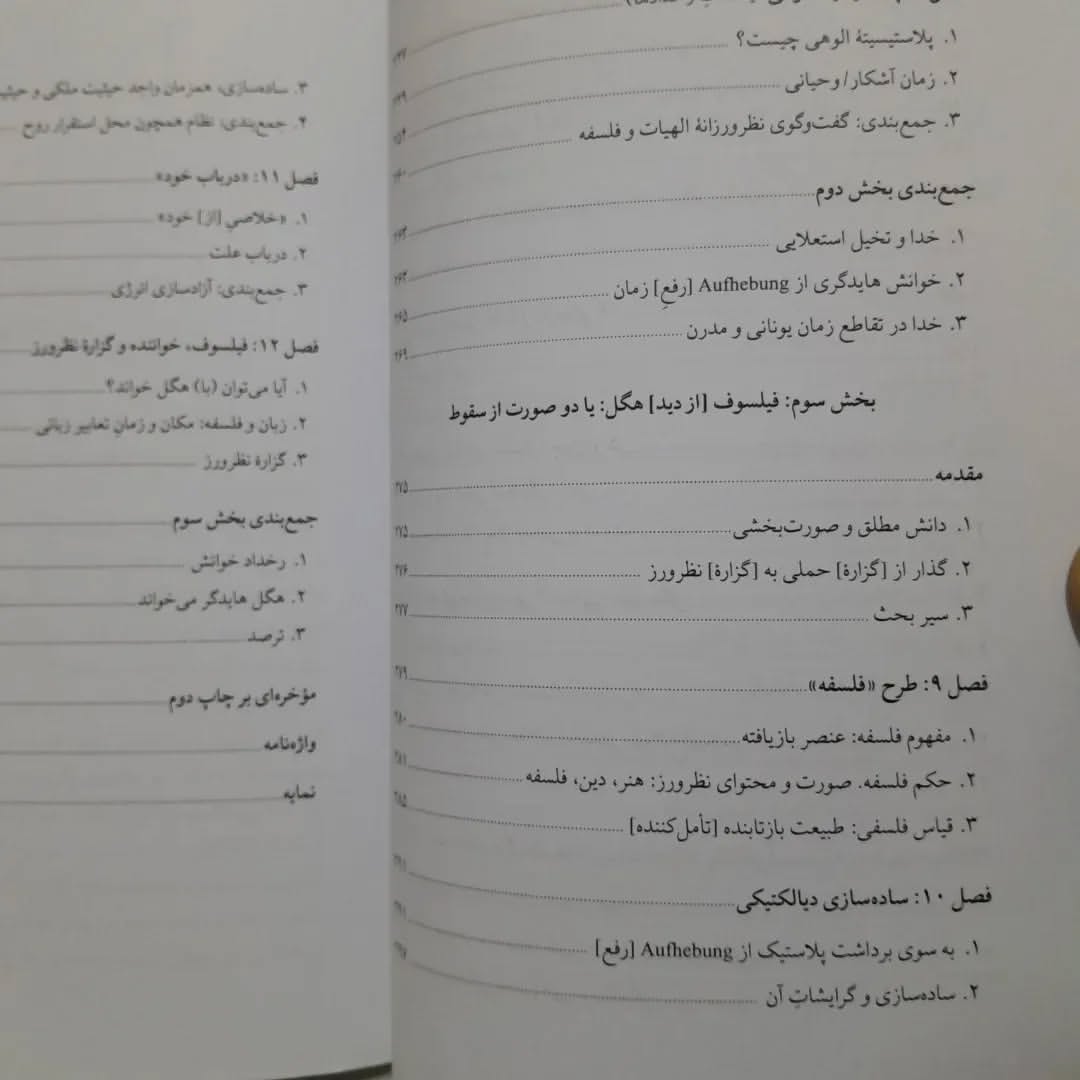 ۱. پلاستیسیتهٔ الوهی چیست؟
۲. زمان آشکار/وحیانی
۳. جمع‌بندی: گفت‌وگوی نظرورزانهٔ الهیات و فلسفه
جمع‌بندی بخش دوم
۱. خدا و تخیل استعلایی
۲. خوانش هایدگری از Aufhebung [رفعِ] زمان ۲۶۵
۳. خدا در تقاطع زمان یونانی و مدرن ۲۶۹
بخش سوم: فیلسوف [از دید] هگل: یا دو صورت از سقوط
مقدمه ۲۷۵
۱. دانش مطلق و صورت‌بخشی ۲۷۵
۲. گذار از [گزارهٔ] حملی به [گزارهٔ] نظرورز ۲۷۶
۳. سیر بحث ۲۷۷
فصل ۹: طرح «فلسفه» ۲۷۹
۱. مفهوم فلسفه: عنصر بازیافته ۲۸۰
۲. حکم فلسفه. صورت و محتوای نظرورز: هنر، دین، فلسفه ۲۸۱
۳. قیاس فلسفی: طبیعت بازتابنده [تأمل‌کننده] ۲۸۵
فصل ۱۰: ساده‌سازی دیالکتیکی
۱. به سوی برداشت پلاستیک از Aufhebung [رفع]
۲. ساده‌سازی و گرایشاتِ آن
۳. ساده‌سازی، همزمان واجد حیثیت ملکی و
۴. جمع‌بندی، نظام همچون محل استقرار روح
فصل ۱۱: «درباب خود»
۱. «خلاصیِ [از] خود»
۲. درباب علت
۳. جمع‌بندی: آزادسازی انرژی
فصل ۱۲: فیلسوف، خواننده و گزارهٔ نظرورز
۱. آیا می‌توان (با) هگل خواند؟
۲. زبان و فلسفه: مکان و زمانِ تعابیر زبانی
۳. گزارهٔ نظرورز
جمع‌بندی بخش سوم
۱. رخداد خوانش
۲. هگل هایدگر می‌خواند
۳. ترصد
مؤخره‌ای بر چاپ دوم
واژه‌نامه
نمایه